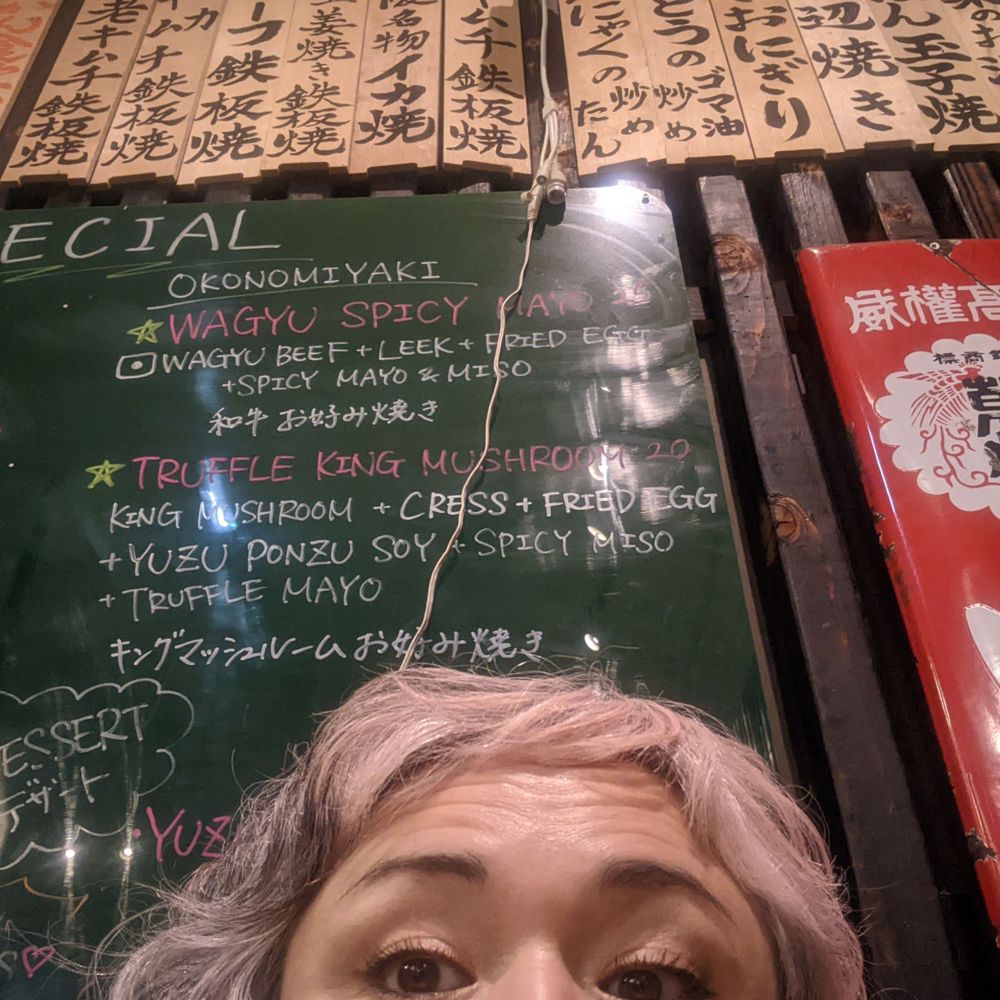 キムチ鉄板焼
鉄板焼
生姜焼き鉄板焼
名物イカ焼
キムチ鉄板焼
にゃくの炒めたん
とうのゴマ油炒め
おにぎり
辺焼き
玉子焼
ECIAL
OKONOMIYAKI
WAGYU SPICY MAYO
WAGYU BEEF + LEEK + FRIED EGG
+ SPICY MAYO & MISO
和牛 お好み焼き
TRUFFLE KING MUSHROOM 20
KING MUSHROOM + CRESS + FRIED EGG
+ YUZU PONZU SOY + SPICY MISO
+ TRUFFLE MAYO
キングマッシュルーム お好み焼き
ESSERT
デザート
・YUZ
威權高
標商